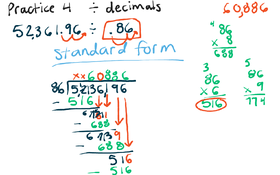 Practice 4 ÷ decimals
60,886
52361.96 ÷ .86
standard form
xx60886
86)5236196
-516
688
-688
-688
516
-516
4
86
x 8
688
3
86
x 6
516
5
86
x 9
774